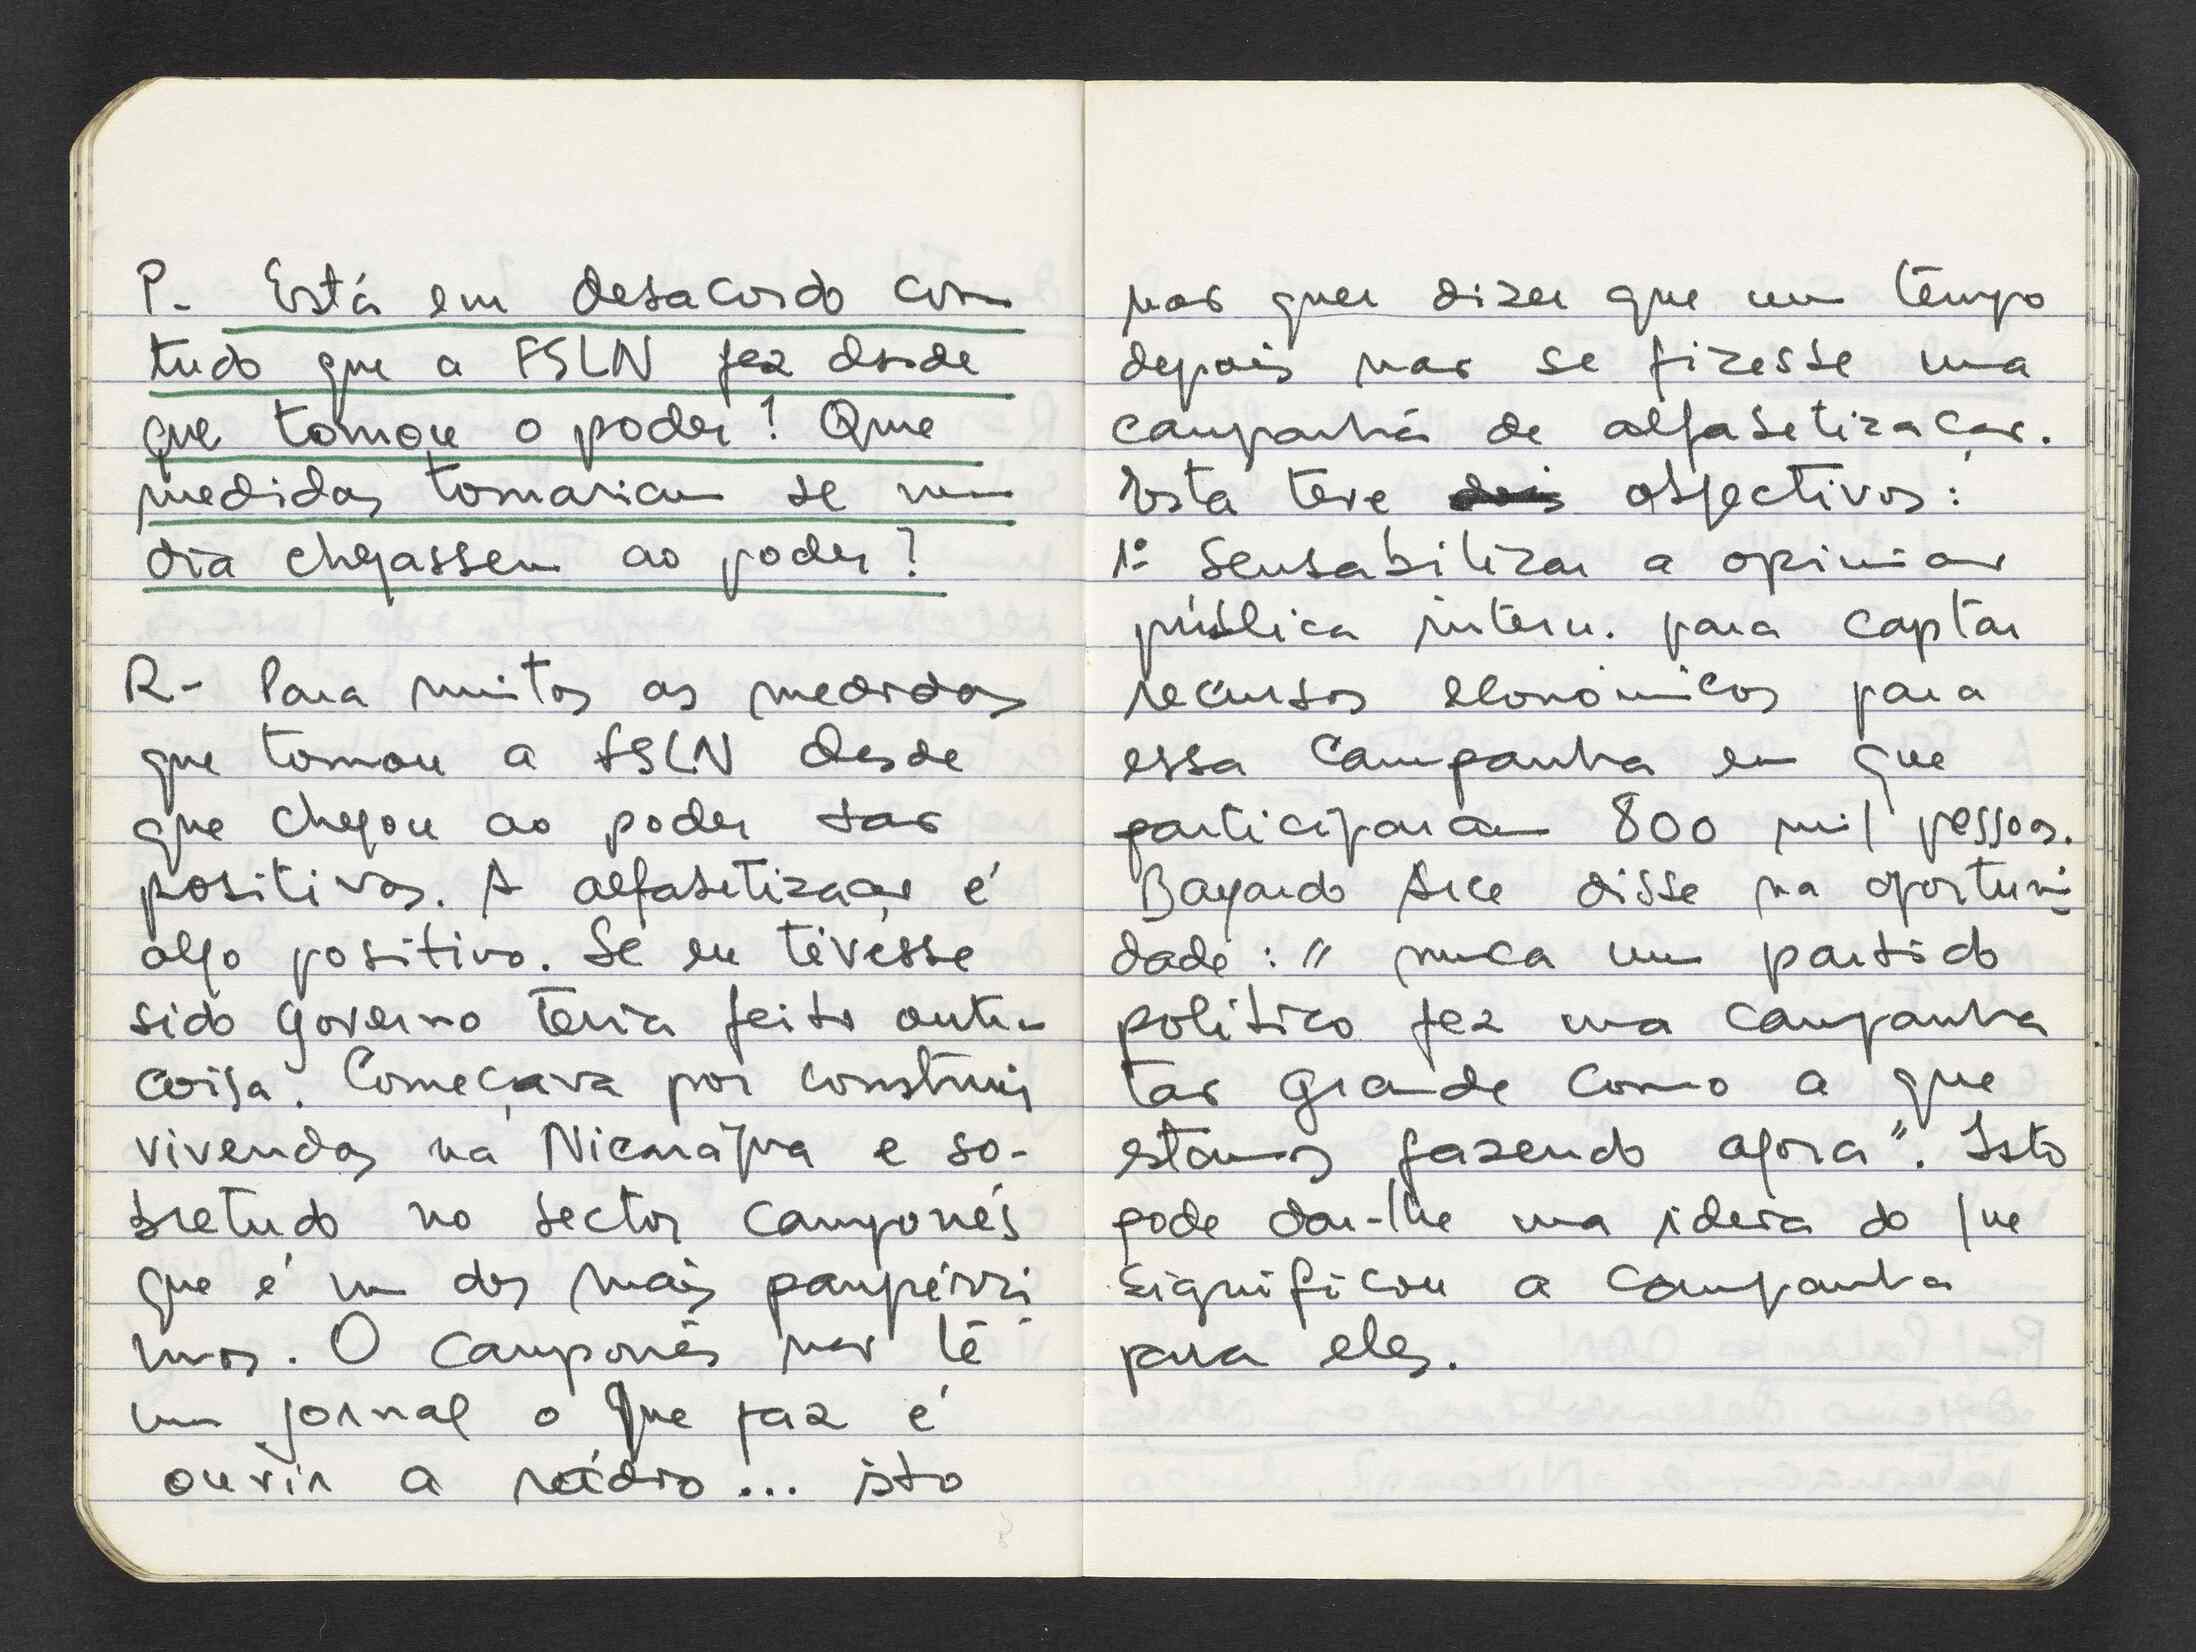 P- Está em desacordo com
tudo que a FSLN fez desde
que tomou o poder? Que
medidas tomariam se um
dia chegassem ao poder?
R- Para muitos as medidas
que tomou a FSLN desde
que chegou ao poder são
positivas. A alfabetização é
algo positivo. Se eu tivesse
sido Governo teria feito outra
coisa. Começava por construir
vivendas na Nicarágua e so-
bretudo no sector camponês
que é um dos mais paupérri-
mos. O camponês não lê
um jornal o que faz é
ouvir a rádio... isto
não quer dizer que um tempo
depois não se fizesse uma
campanha de alfabetização.
Esta teve dois objectivos:
1º Sensabilizar a opinião
pública intern. para captar
recursos económicos para
essa campanha em que
participaram 800 mil pessoas.
Bayardo Arce disse na oportuni-
dade: "nunca um partido
político fez uma campanha
tão grande como a que
estamos fazendo agora". Isto
pode dar-lhe uma ideia do que
significou a campanha
para eles.